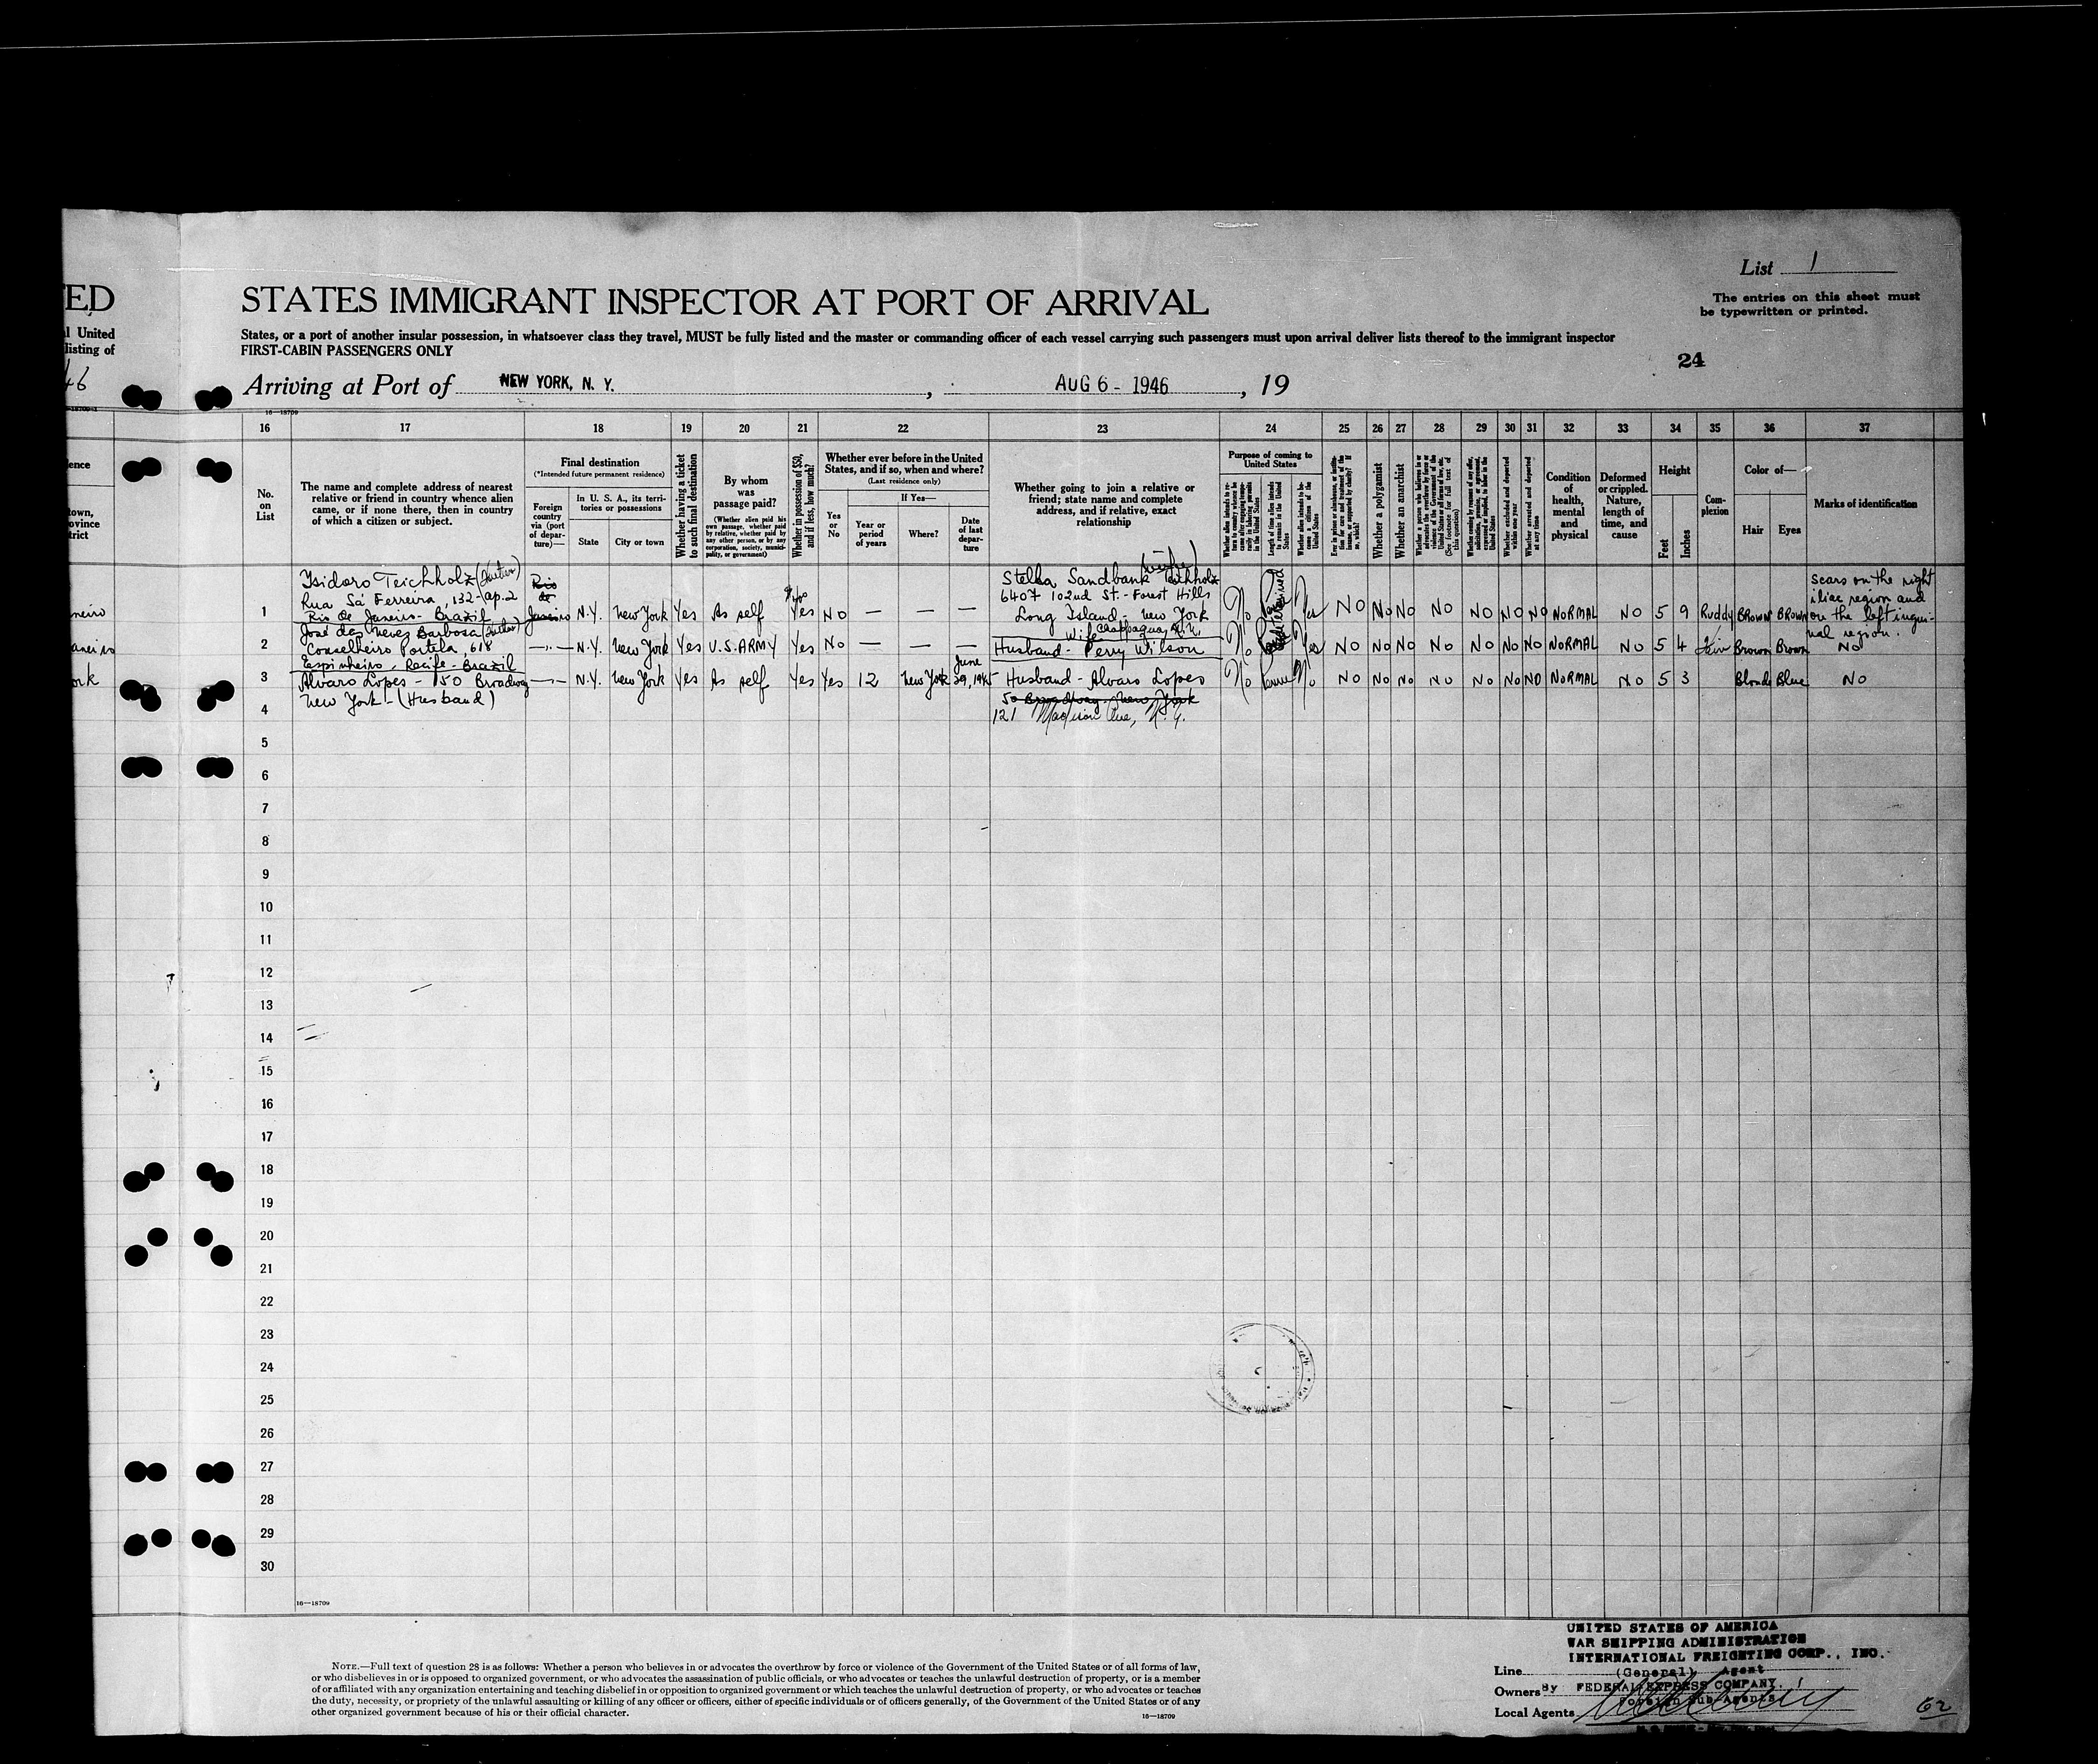 List 1
The entries on this sheet must
be typewritten or printed.
ED
STATES IMMIGRANT INSPECTOR AT PORT OF ARRIVAL
l United
listing of
States, or a port of another insular possession, in whatsoever class they travel, MUST be fully listed and the master or commanding officer of each vessel carrying such passengers must upon arrival deliver lists thereof to the immigrant inspector
FIRST-CABIN PASSENGERS ONLY
24
46
Arriving at Port of NEW YORK, N. Y. , AUG 6 - 1946 , 19
16—18709
16 17 18 19 20 21 22 23 24 25 26 27 28 29 30 31 32 33 34 35 36 37
No.
on
List
The name and complete address of nearest
relative or friend in country whence alien
came, or if none there, then in country
of which a citizen or subject.
Final destination
(*Intended future permanent residence)
Foreign
country
via (port
of depar-
ture)—
In U. S. A., its terri-
tories or possessions
State
City or town
Whether having a ticket
to such final destination
By whom
was
passage paid?
(Whether alien paid his
own passage, whether paid
by relative, whether paid by
any other person, or by any
corporation, society, munici-
pality, or government)
Whether in possession of $50,
and if less, how much?
Whether ever before in the United
States, and if so, when and where?
(Last residence only)
Yes
or
No
If Yes—
Year or
period
of years
Where?
Date
of last
depar-
ture
Whether going to join a relative or
friend; state name and complete
address, and if relative, exact
relationship
Purpose of coming to
United States
Whether a polygamist
Whether an anarchist
Whether excluded and deported
within one year
Whether arrested and deported
at any time
Condition
of
health,
mental
and
physical
Deformed
or crippled.
Nature,
length of
time, and
cause
Height
Feet
Inches
Com-
plexion
Color of—
Hair
Eyes
Marks of identification
ence
town,
ovince
trict
neiro
aneiro
ork
1
Isidoro Teichholz
Rua Sá Ferreira, 132 - ap. 2
Rio de Janeiro - Brazil
Rio
de
Janeiro
N.Y. New York Yes As self Yes NO — — —
Stella Sandbank Teichholz (wife)
6407 102nd St. - Forest Hills
Long Island - New York
No Yes NO NO NO NO NO NO NO NORMAL NO 5 9 Ruddy BROWN BROWN
scars on the right
iliac region and
on the left ingui-
nal region.
2
José das Neves Barbosa
Conselheiro Portela, 618
Espinheiro, Recife - Brazil
—"— N.Y. New York Yes U.S. ARMY Yes NO — — —
Wife Chappaqua, N.Y.
Husband - Perry Wilson
No Yes NO NO NO NO NO NO NO NORMAL NO 5 4 Fair Brown Brown NO
3
Alvaro Lopes - 150 Broadway
New York - (Husband)
—"— N.Y. New York Yes As self Yes Yes 12 New York June 29, 1945
Husband - Alvaro Lopes
50 Broadway - New York
121 Madison Ave, N.Y.
No No NO NO NO NO NO NO NO NORMAL NO 5 3 Blond Blue NO
4
5
6
7
8
9
10
11
12
13
14
15
16
17
18
19
20
21
22
23
24
25
26
27
28
29
30
16—18709
NOTE.—Full text of question 28 is as follows: Whether a person who believes in or advocates the overthrow by force or violence of the Government of the United States or of all forms of law,
or who disbelieves in or is opposed to organized government, or who advocates the assassination of public officials, or who advocates or teaches the unlawful destruction of property, or is a member
of or affiliated with any organization entertaining and teaching disbelief in or opposition to organized government or which teaches the unlawful destruction of property, or who advocates or teaches
the duty, necessity, or propriety of the unlawful assaulting or killing of any officer or officers, either of specific individuals or of officers generally, of the Government of the United States or of any
other organized government because of his or their official character.
16—18709
UNITED STATES OF AMERICA
WAR SHIPPING ADMINISTRATION
INTERNATIONAL FREIGHTING CORP., INC.
Line (General) Agent
Owners By FEDERAL EXPRESS COMPANY
Local Agents Foreign Sub Agents
62